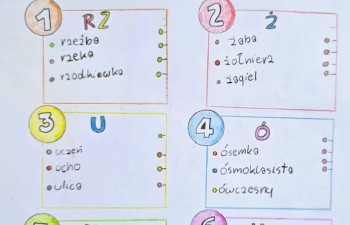 1 RZ
rzeźba
rzeka
rzodkiewka
2 Ż
żaba
żołnierz
żagiel
3 U
uczeń
ucho
ulica
4 Ó
ósemka
ósmoklasista
ówczesny